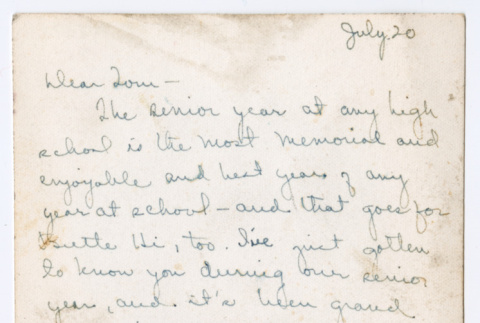 July 20
Dear Tom —
The senior year at any high
school is the most memorial and
enjoyable and best year of any
year at school — and that goes for
Butte Hi, too. I've just gotten
to know you during our senior
year, and it's been grand